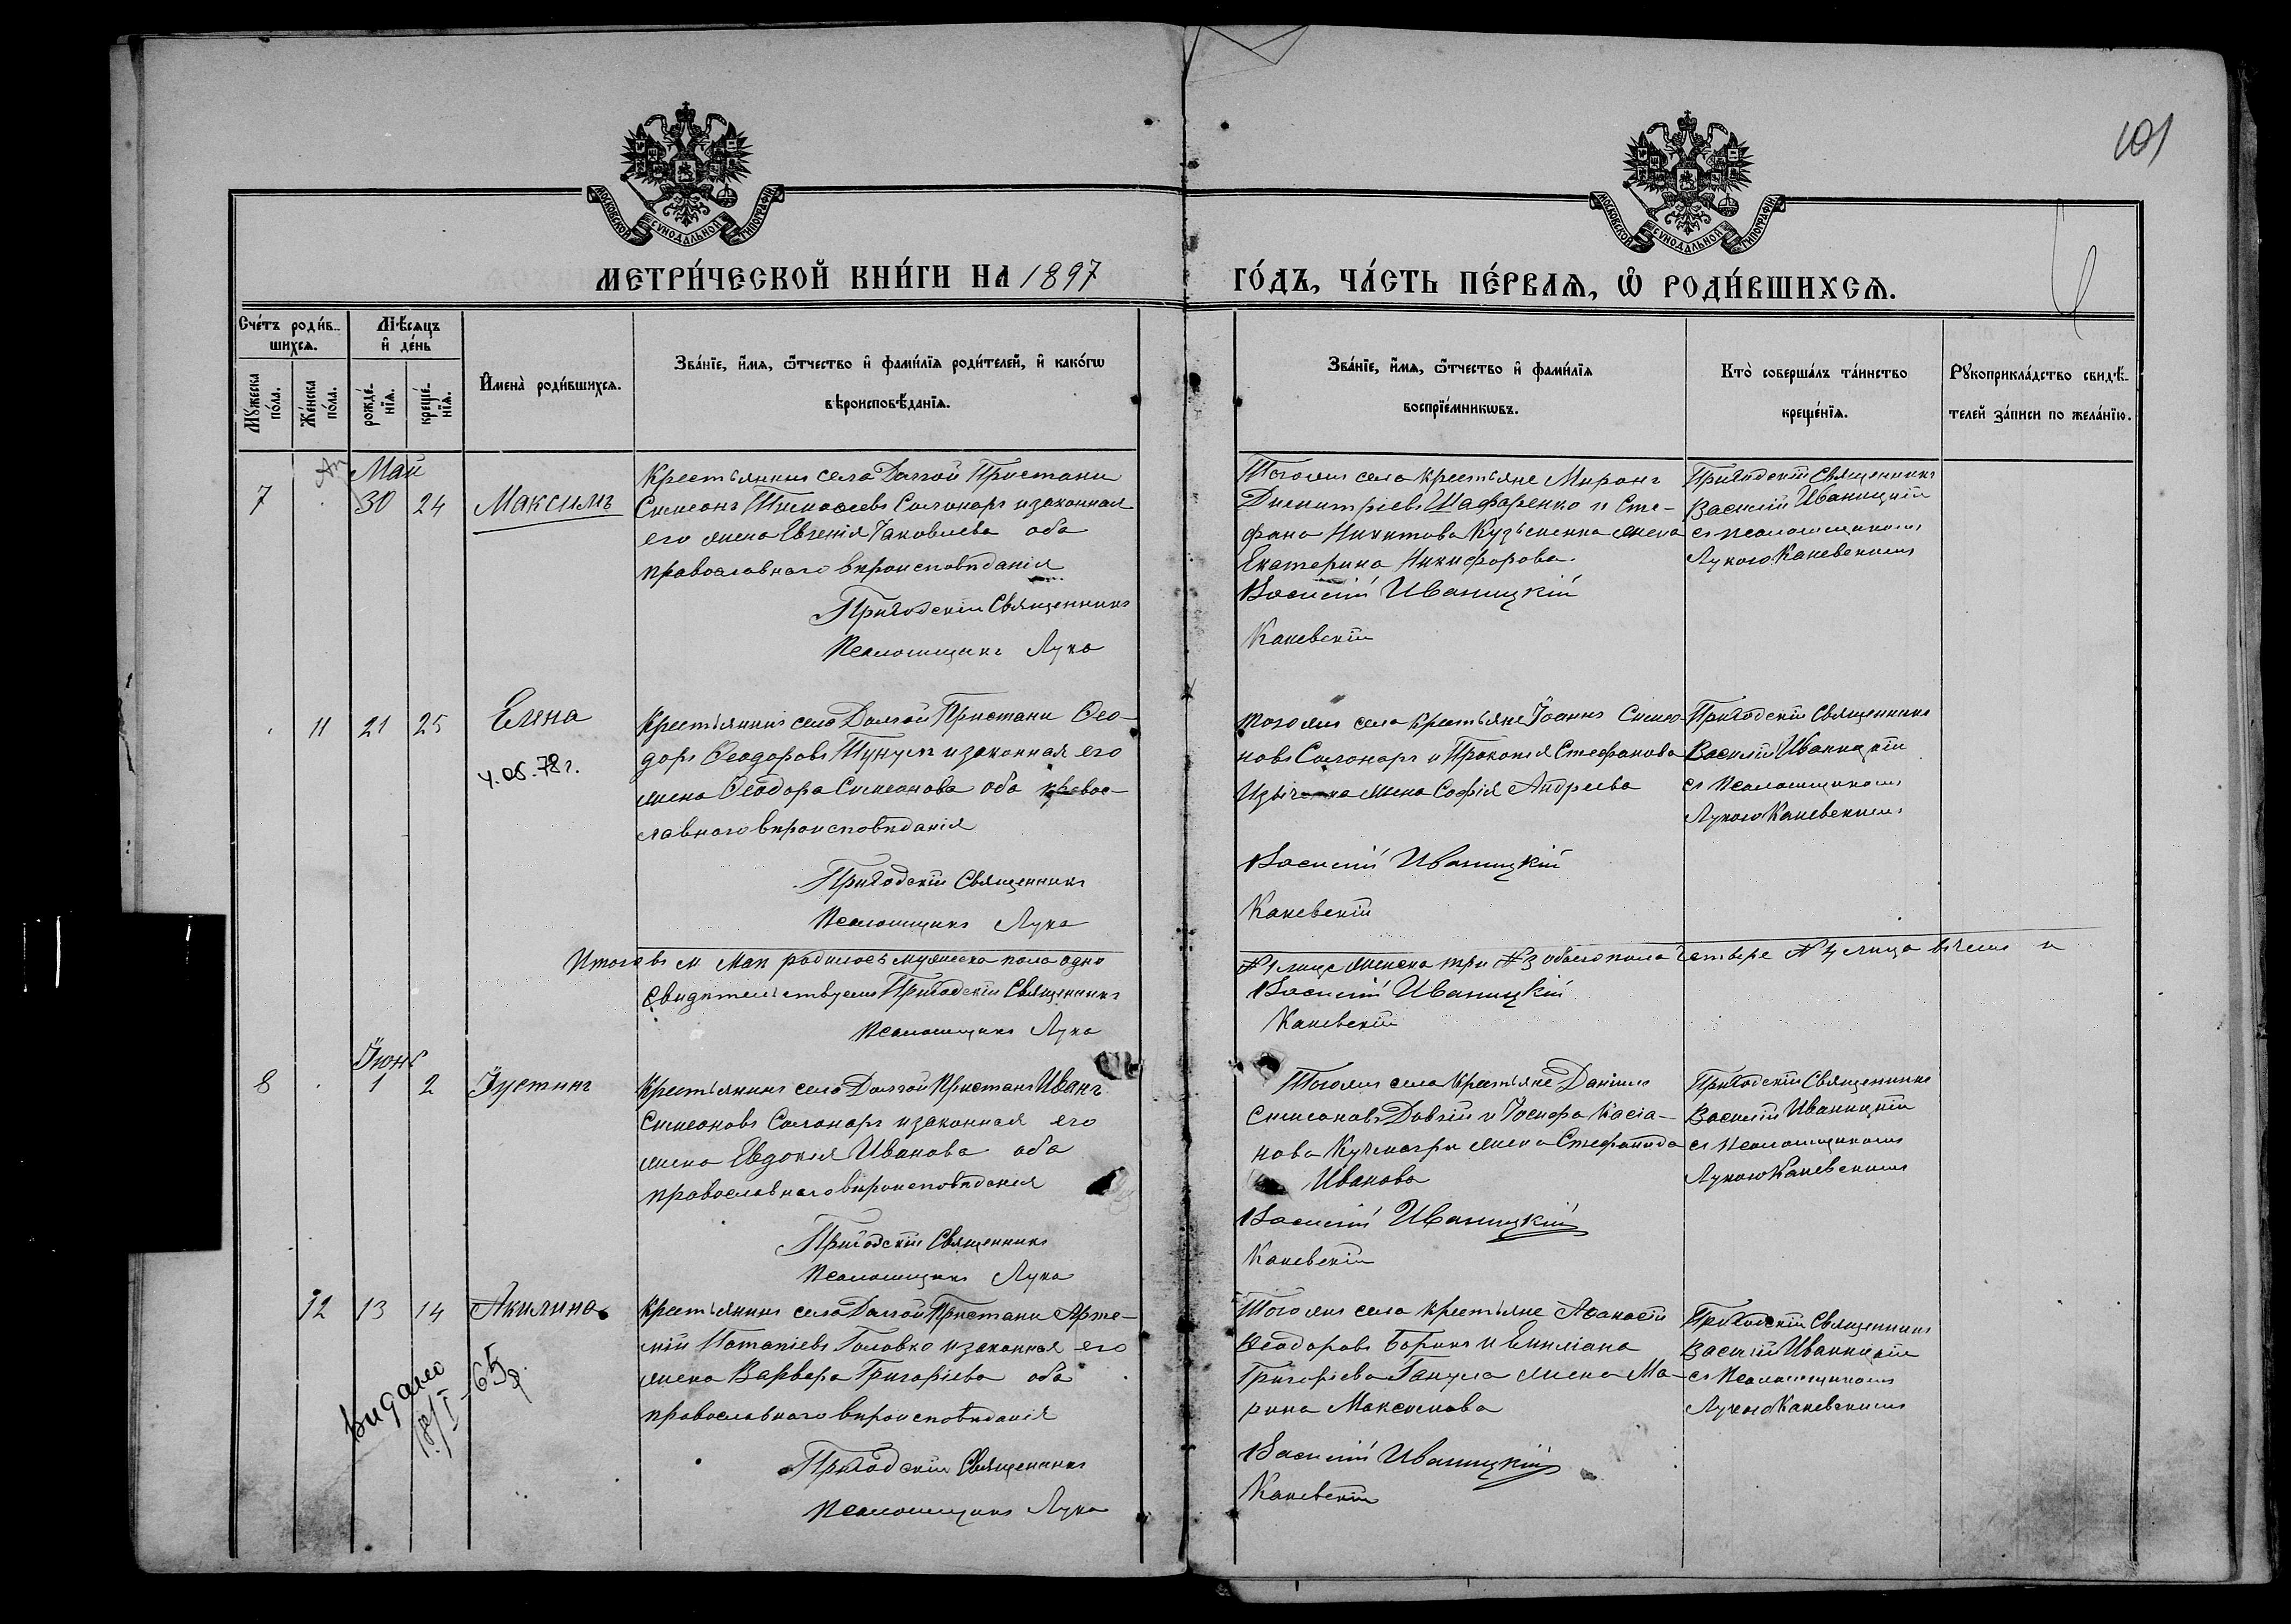 101
МОСКОВСКОЙ СѴНОДАЛЬНОЙ ТИПОГРАФІИ
МОСКОВСКОЙ СѴНОДАЛЬНОЙ ТИПОГРАФІИ
МЕТРИ́ЧЕСКОЙ КНИ́ГИ НА 1897
ГО́ДЪ, ЧА́СТЬ ПЕ́РВАѦ, Ѽ РОДИ́ВШИХСѦ.
Сче́тъ роди́в-
шихсѧ.
Мꙋжеска по́ла.
Же́нска по́ла.
Мѣ́сѧцъ
и҆ де́нь
рожде́-
нїѧ.
креще́-
нїѧ.
И҆мена̀ роди́вшихсѧ.
Зва́нїе, и҆́мѧ, ѻ҆́тчество и҆ фами́лїѧ роди́телей, и҆ како́гѡ
вѣроисповѣ́данїѧ.
Зва́нїе, и҆́мѧ, ѻ҆́тчество и҆ фами́лїѧ
воспрїе́мникѡвъ.
Кто̀ соверша́лъ та́инство
креще́нїѧ.
Рꙋкоприкла́дство свидѣ́-
телей за́писи по жела́нїю.
Май
7 30 24 Максимъ
Крестьянинъ села Долгой Пристани
Симеонъ Тимоѳеевъ Салонарь и законная
его жена Евгенія Іаковлева оба
православнаго вѣроисповѣданія
Приходскій Священникъ
Псаломщикъ Лука
Тогоже села крестьяне Миронъ
Димитріевъ Шафаренко и Сте-
фана Никитова Кузьменка жена
Екатерина Никифорова.
Василій Иваницкій
Каневскій
Приходскій Священникъ
Василій Иваницкій
съ псаломщикомъ
Лукою Каневскимъ
11 21 25 Елена
Крестьянинъ села Долгой Пристани Ѳео-
доръ Ѳеодоровъ и законная его
жена Ѳеодора Симеонова оба правос-
лавнаго вѣроисповѣданія
78г.
Приходскій Священникъ
Псаломщикъ Лука
тогоже села крестьяне Іоаннъ Симео-
новъ Салонарь и Прокопія Стефанова
жена Софія Андреева
Василій Иваницкій
Каневскій
Приходскій Священникъ
Василій Иваницкій
съ Псаломщикомъ
Лукою Каневскимъ
Итого въ м Маѣ родилось мужеска пола одно
№ 1 лице женска три № 3 обоего пола четвере № 4 лица въ чемъ и
Свидѣтельствуемъ Приходскій Священникъ
Василій Иваницкій
Псаломщикъ Лука
Каневскій
Іюнь
8 1 2 Іустинъ
Крестьянинъ села Долгой Пристани Иванъ
Симеоновъ Салонарь и законная его
жена Евдокія Иванова оба
православнаго вѣроисповѣданія
Приходскій Священникъ
Псаломщикъ Лука
Тогоже села крестьяне Даніилъ
Симеоновъ Довгій и Іосифа Касіа-
нова Кучмагры жена Стефанида
Иванова
Василій Иваницкій
Каневскій
Приходскій Священникъ
Василій Иваницкій
съ псаломщикомъ
Лукою Каневскимъ
12 13 14 Акилина
Крестьянинъ села Долгой Пристани Арте-
мій Потапіевъ Головко и законная его
жена Варвара Григоріева оба
православнаго вѣроисповѣданія
видано
18/I-65р
Приходскій Священникъ
Псаломщикъ Лука
Тогоже села крестьяне Аѳанасій
Ѳеодоровъ и Емиліана
Григоріева жена Ма-
рина Максимова
Василій Иваницкій
Каневскій
Приходскій Священникъ
Василій Иваницкій
съ Псаломщикомъ
Лукою Каневскимъ